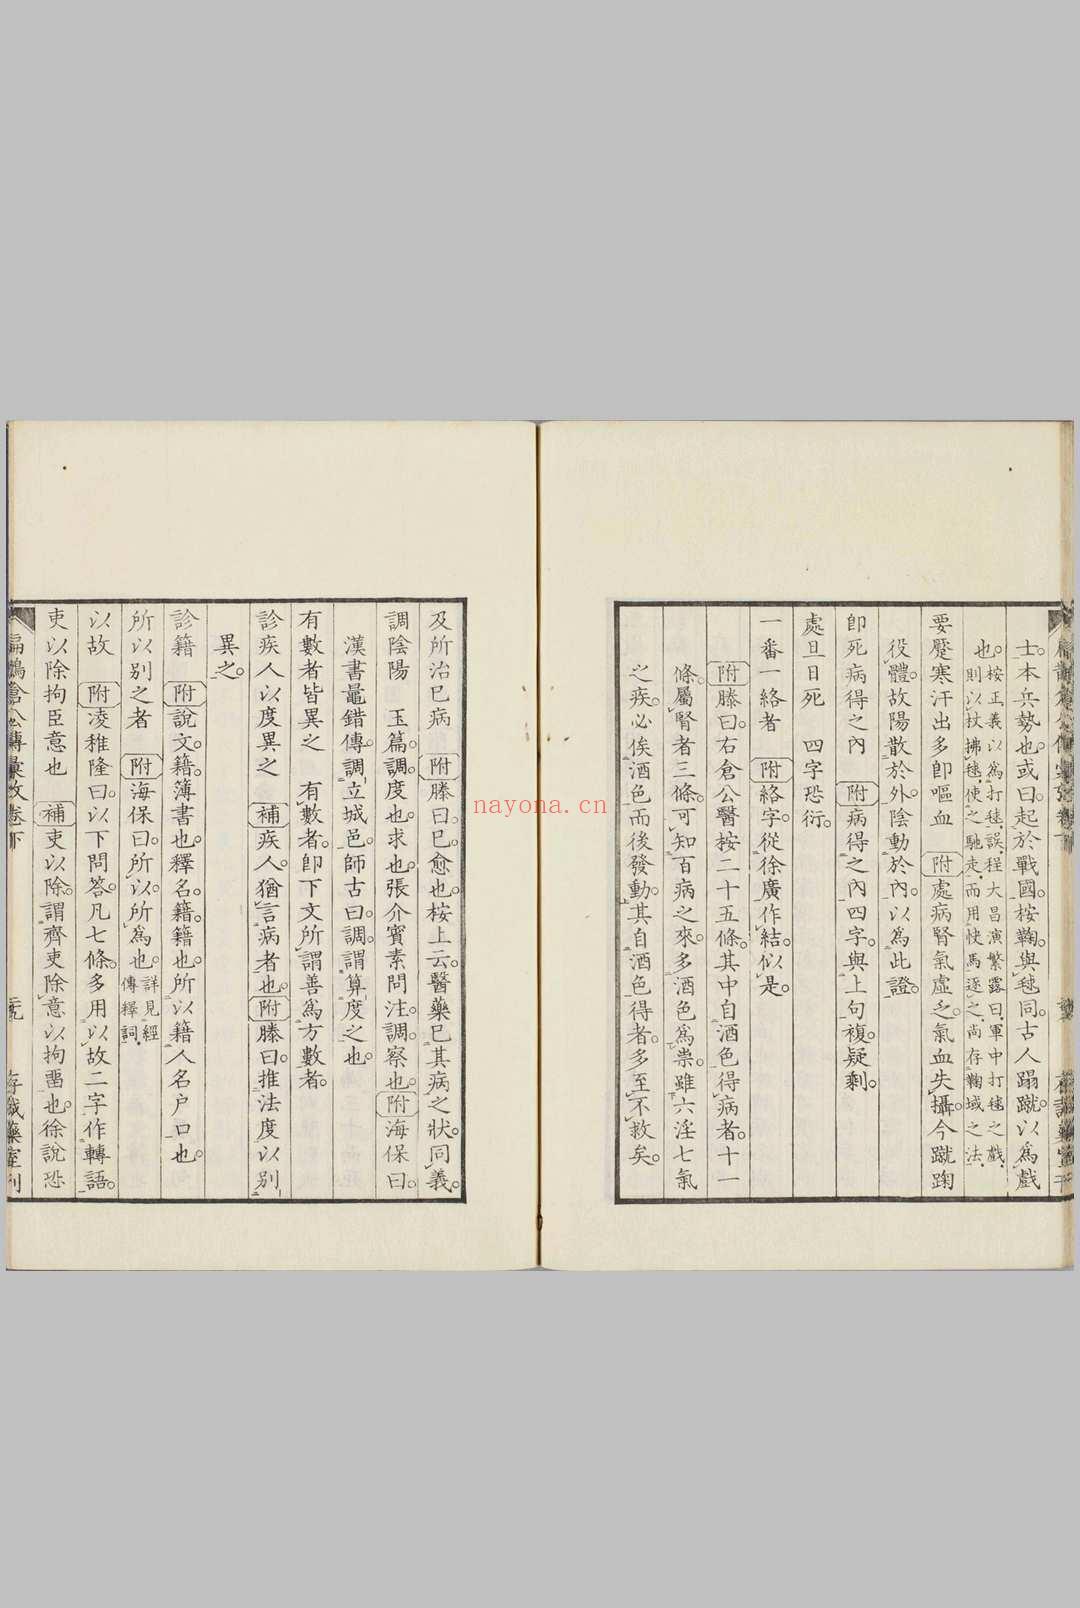 士。本兵勢也。或曰。起於戰國。桉鞠與毬同。古人蹋蹴以爲戲
也。桉正義以爲打毬。誤。程大昌演繁露曰。軍中打毬之戲。
則以杖拂毬。使之馳走。而用快馬逐之。尚存鞠域之法。
要蹷寒汗出多卽嘔血 附處病腎氣虛乏。氣血失攝。今蹴踘
役體。故陽散於外。陰動於內。以爲此證。
卽死病得之內 附病得之內四字。與上句複。疑剩。
處旦日死 四字恐衍。
一番一絡者 附絡字。從徐廣作結。似是。
附滕曰。右倉公醫桉二十五條。其中自酒色得病者。十一
條。屬腎者三條。可知百病之來。多酒色爲祟。雖六淫七氣
之疾。必俟酒色而後發動。其自酒色得者。多至不救矣。
及所治已病 附滕曰。已。愈也。桉上云。醫藥已其病之狀。同義。
調陰陽 玉篇。調。度也。求也。張介賓素問注。調。察也。附海保曰。
漢書鼂錯傳。調立城邑。師古曰。調。謂算度之也。
有數者皆異之 有數者。卽下文所謂善爲方數者。
診疾人以度異之 補疾人。猶言病者也。附滕曰。推法度以別
異之。
診籍 附說文。籍。簿書也。釋名。籍。籍也。所以籍人名戶口也。
所以別之者 附海保曰。所以。所爲也。詳見經
傳釋詞。
以故 附凌稚隆曰。以下問答。凡七條。多用以故二字作轉語。
吏以除拘臣意也 補吏以除。謂齊吏除意以拘畱也。徐說恐
扁鵲倉公傳彙攷卷下 存誠藥室刊
nayona.cn